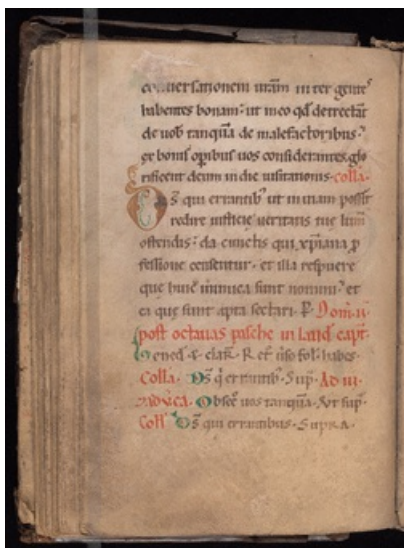 conuersationem ur̄am in ter gentes
habentes bonam: ut in eo qd̄ detrectāt
de uob tanquā de malefactoribus:
ex bonis opib; uos considerantes. glo
rificent deum in die uisitationis. coll̄a.
Ds̄ qui errantib; ut in uiam possīt
redire iusticie ueritatis tue lum̄
ostendis: da cunctis qui xp̄iana p̄
fessione censentur. et illa respuere
que huic inimica sunt nomini: et
ea que sunt apta sectari. P. Dom̄. ii.
post octauas pasche in laud̄ capt̄.
Coll̄a. Ds̄ q̇ errantib;. Sup̄. Ad iii.
Obsec̄ uos tanquā. Ut sup̄.
Coll̄ Ds̄ qui errantibus. Supra.